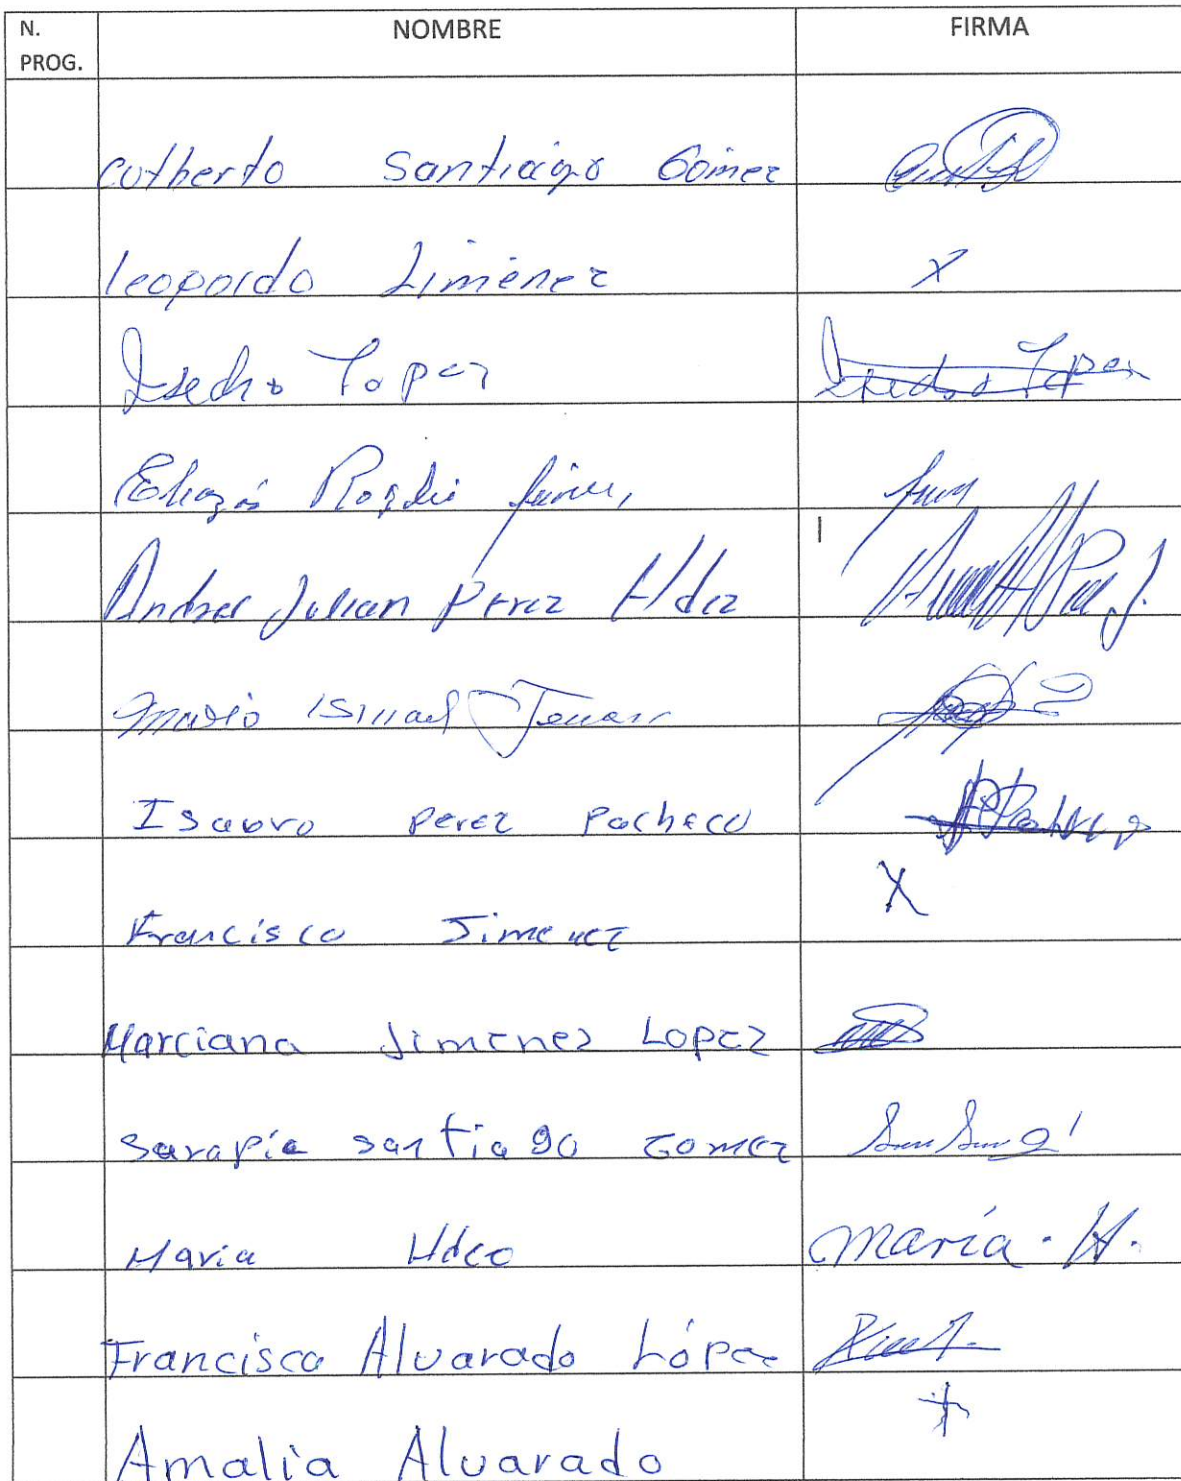 N. PROG. NOMBRE FIRMA
cutberto Santiago Gómez
leopordo Jiménez X
Isedro Lopez Isedro Lopez
Andres Julian Perez Hdez
Mario Ismael
Isauro perez Pacheco
Francisco Jimenez X
Marciana Jimenez Lopez
Sarapia santiago Gomez
Maria Hdeo maría. H.
Francisca Alvarado López
Amalia Alvarado